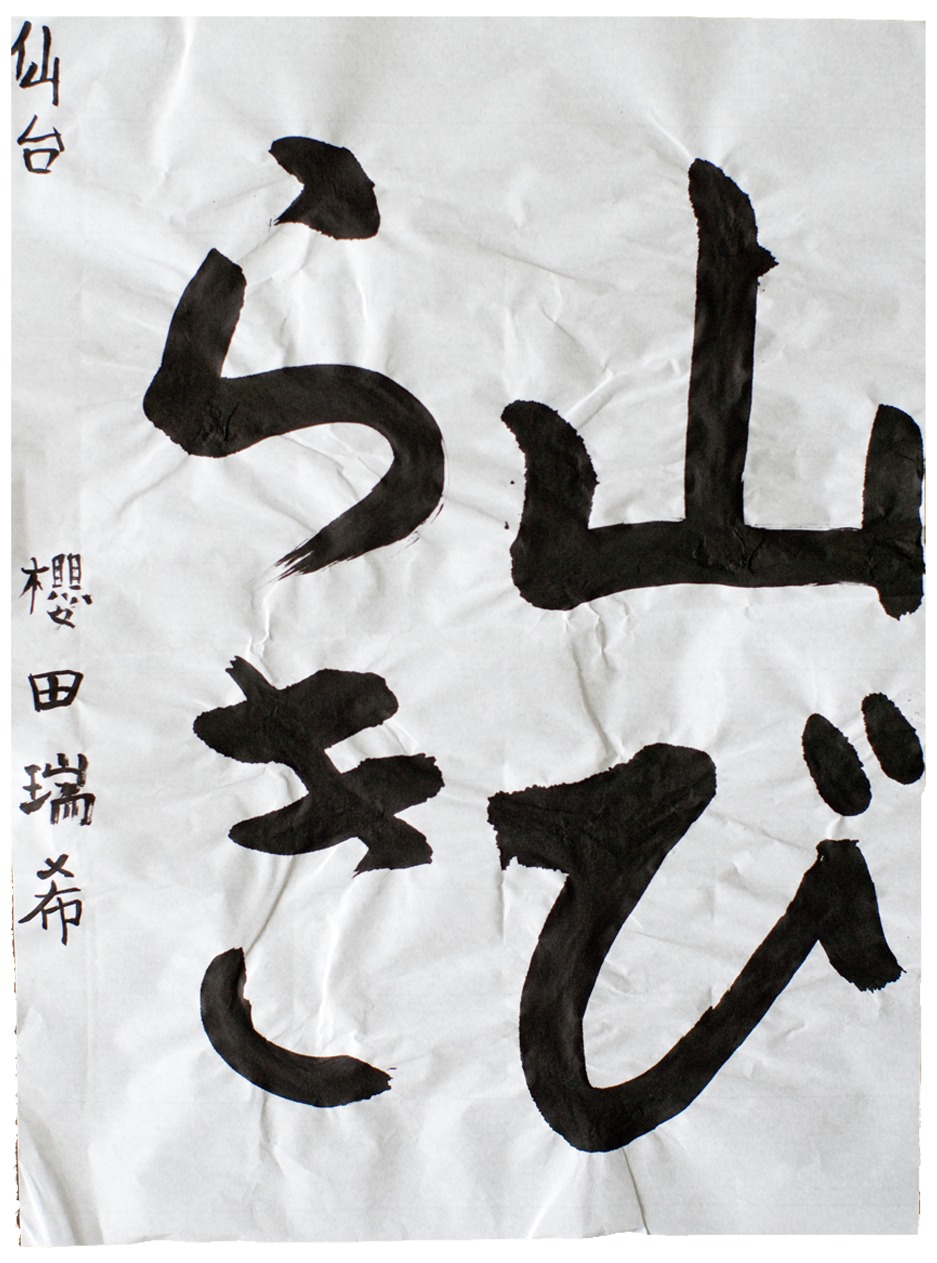 山び
らき
仙台 櫻田瑞希